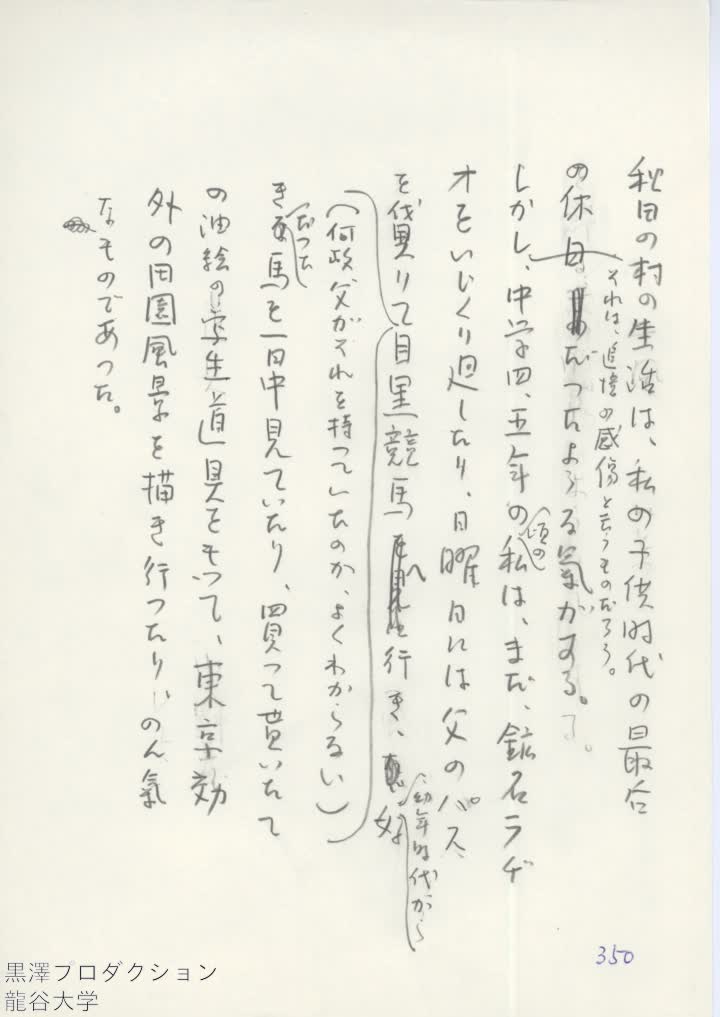 秋田の村の生活は、私の子供時代の最后
の休日だったような気がする。
それは、追憶の感傷と云うものだろう。
しかし、中学四、五年の頃の私は、まだ、鉱石ラヂ
オをいじくり廻したり、日曜日には父のパス
を借りて目黒競馬へ行き、幼年時代から好
(何故父がそれを持っていたのか、よくわからない)
きだった馬を一日中見ていたり、買って貰いたて
の油絵の写生道具をもって、東京効
外の田園風景を描き行ったり、のん気
なものであった。
350
黒澤プロダクション
龍谷大学